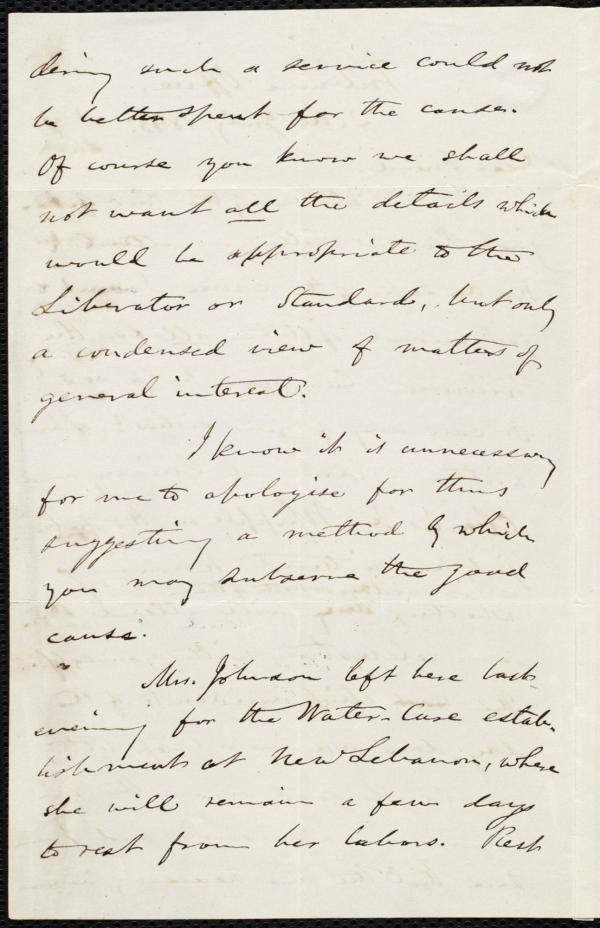 dering such a service could not
be better spent for the cause.
Of course you know we shall
not want all the details which
would be appropriate to the
Liberator or Standard, but only
a condensed view of matters of
general interest.
I know it is unnecessary
for me to apologise for thus
suggesting a method by which
you may subserve the good
cause.
Mrs. Johnson left here last
evening for the Water-Cure estab-
lishment at New Lebanon, where
she will remain a few days
to rest from her labors. Rest